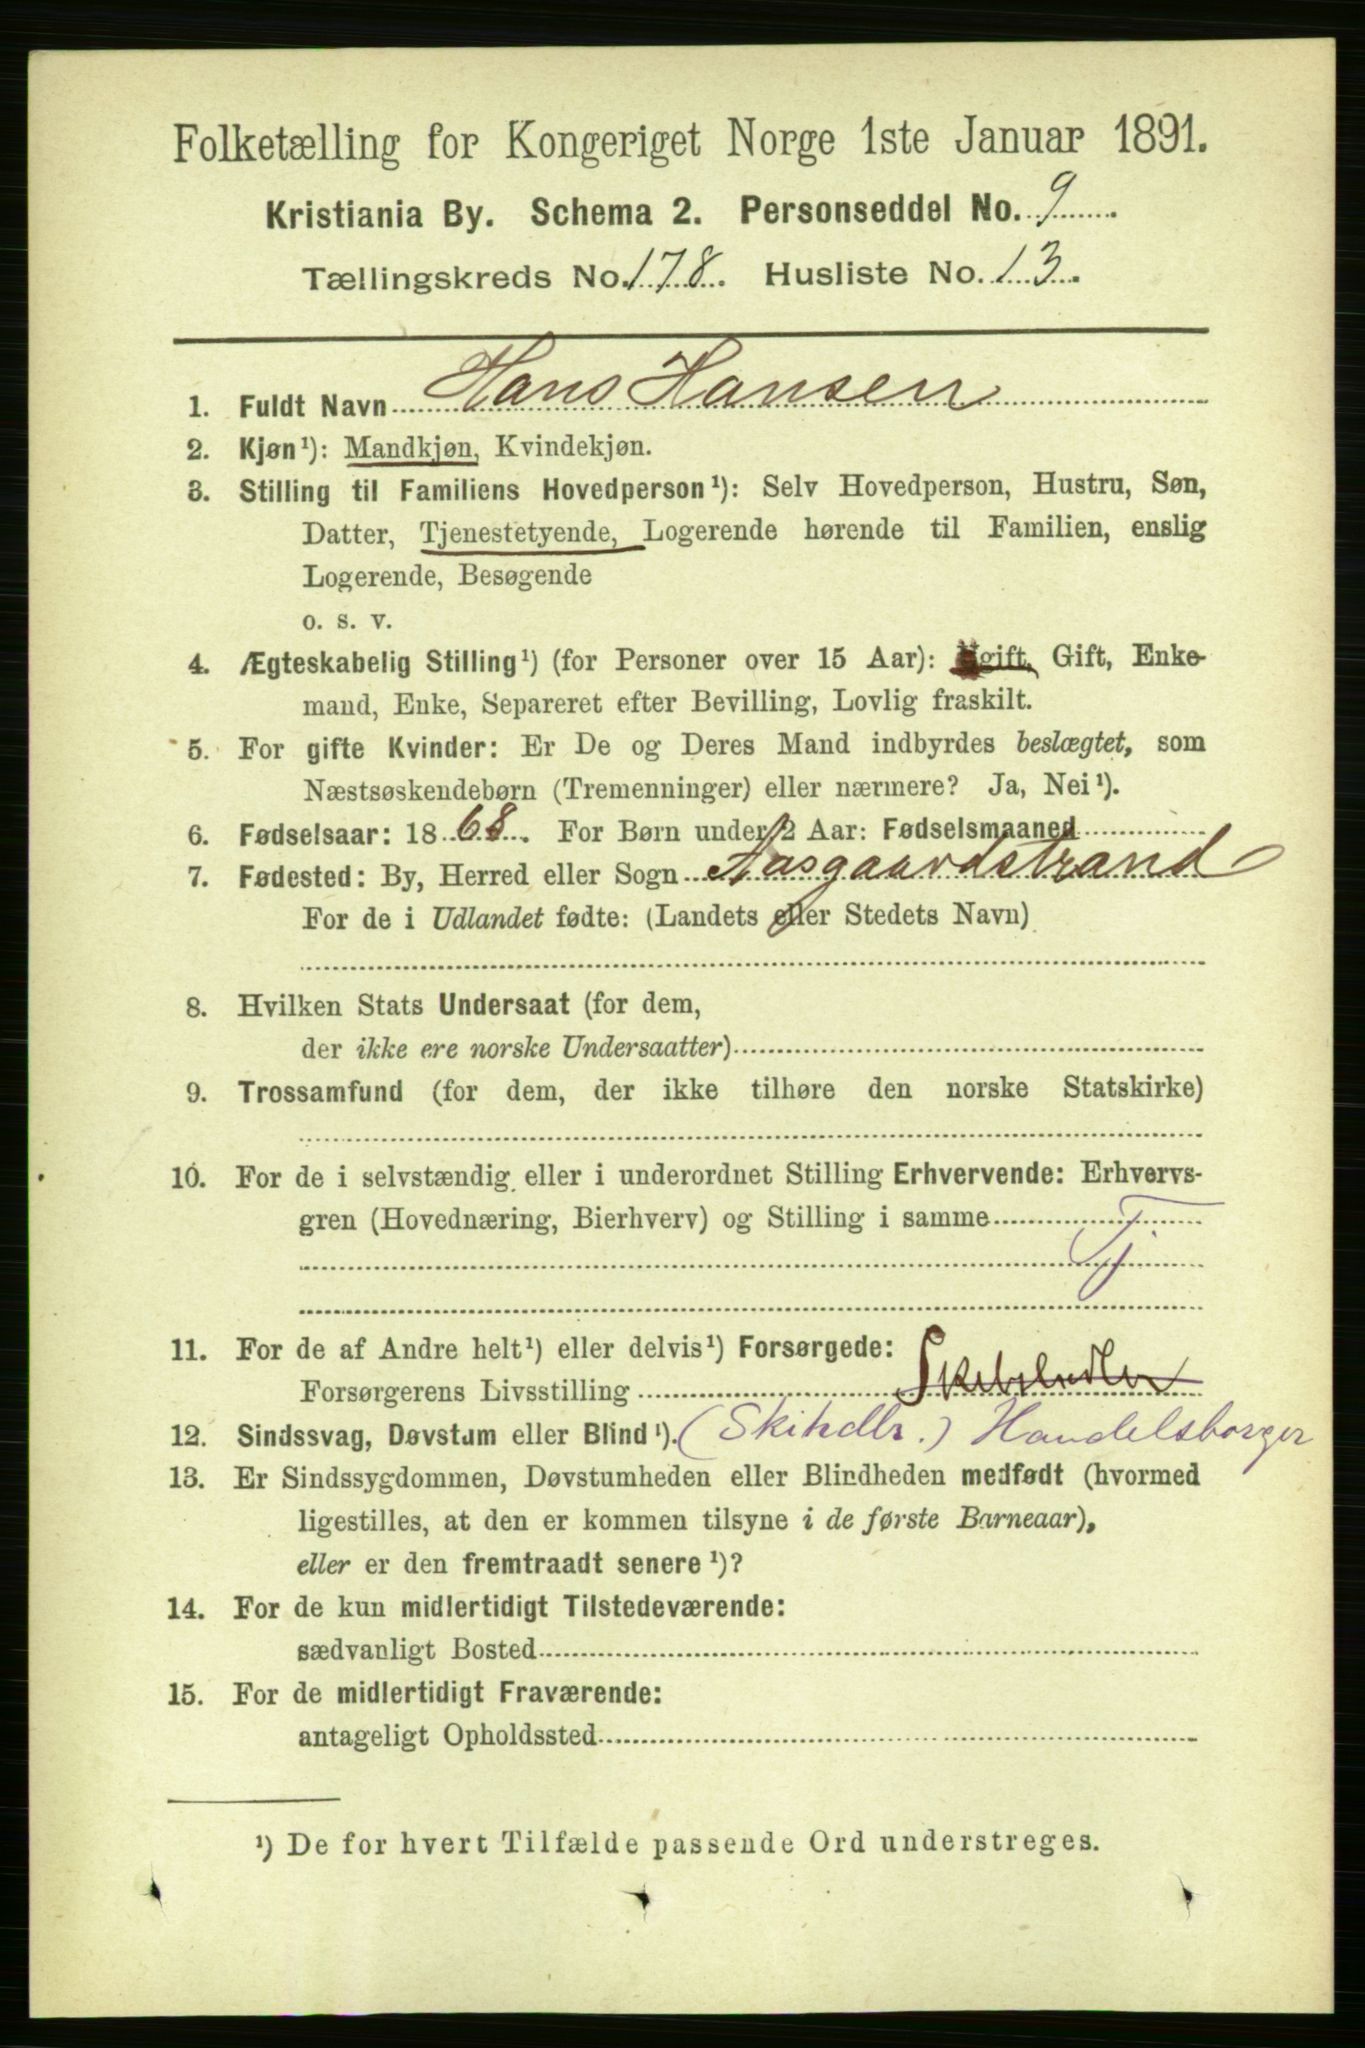 Folketælling for Kongeriget Norge 1ste Januar 1891.
Kristiania By. Schema 2. Personseddel No. 9
Tællingskreds No. 178. Husliste No. 13.
1. Fuldt Navn Hans Hansen
2. Kjøn¹): Mandkjøn, Kvindekjøn.
3. Stilling til Familiens Hovedperson¹): Selv Hovedperson, Hustru, Søn,
Datter, Tjenestetyende, Logerende hørende til Familien, enslig
Logerende, Besøgende
o. s. v.
4. Ægteskabelig Stilling¹) (for Personer over 15 Aar): Ugift, Gift, Enke-
mand, Enke, Separeret efter Bevilling, Lovlig fraskilt.
5. For gifte Kvinder: Er De og Deres Mand indbyrdes beslægtet, som
Næstsøskendebørn (Tremenninger) eller nærmere? Ja, Nei¹).
6. Fødselsaar: 1868. For Børn under 2 Aar: Fødselsmaaned
7. Fødested: By, Herred eller Sogn Aasgaardstrand
For de i Udlandet fødte: (Landets eller Stedets Navn)
8. Hvilken Stats Undersaat (for dem,
der ikke ere norske Undersaatter)
9. Trossamfund (for dem, der ikke tilhøre den norske Statskirke)
10. For de i selvstændig eller i underordnet Stilling Erhvervende: Erhvervs-
gren (Hovednæring, Bierhverv) og Stilling i samme
Tj
11. For de af Andre helt¹) eller delvis¹) Forsørgede:
Forsørgerens Livsstilling
12. Sindssvag, Døvstum eller Blind¹). (Skihdlr.) Handelsborger
13. Er Sindssygdommen, Døvstumheden eller Blindheden medfødt (hvormed
ligestilles, at den er kommen tilsyne i de første Barneaar),
eller er den fremtraadt senere¹)?
14. For de kun midlertidigt Tilstedeværende:
sædvanligt Bosted
15. For de midlertidigt Fraværende:
antageligt Opholdssted
¹) De for hvert Tilfælde passende Ord understreges.